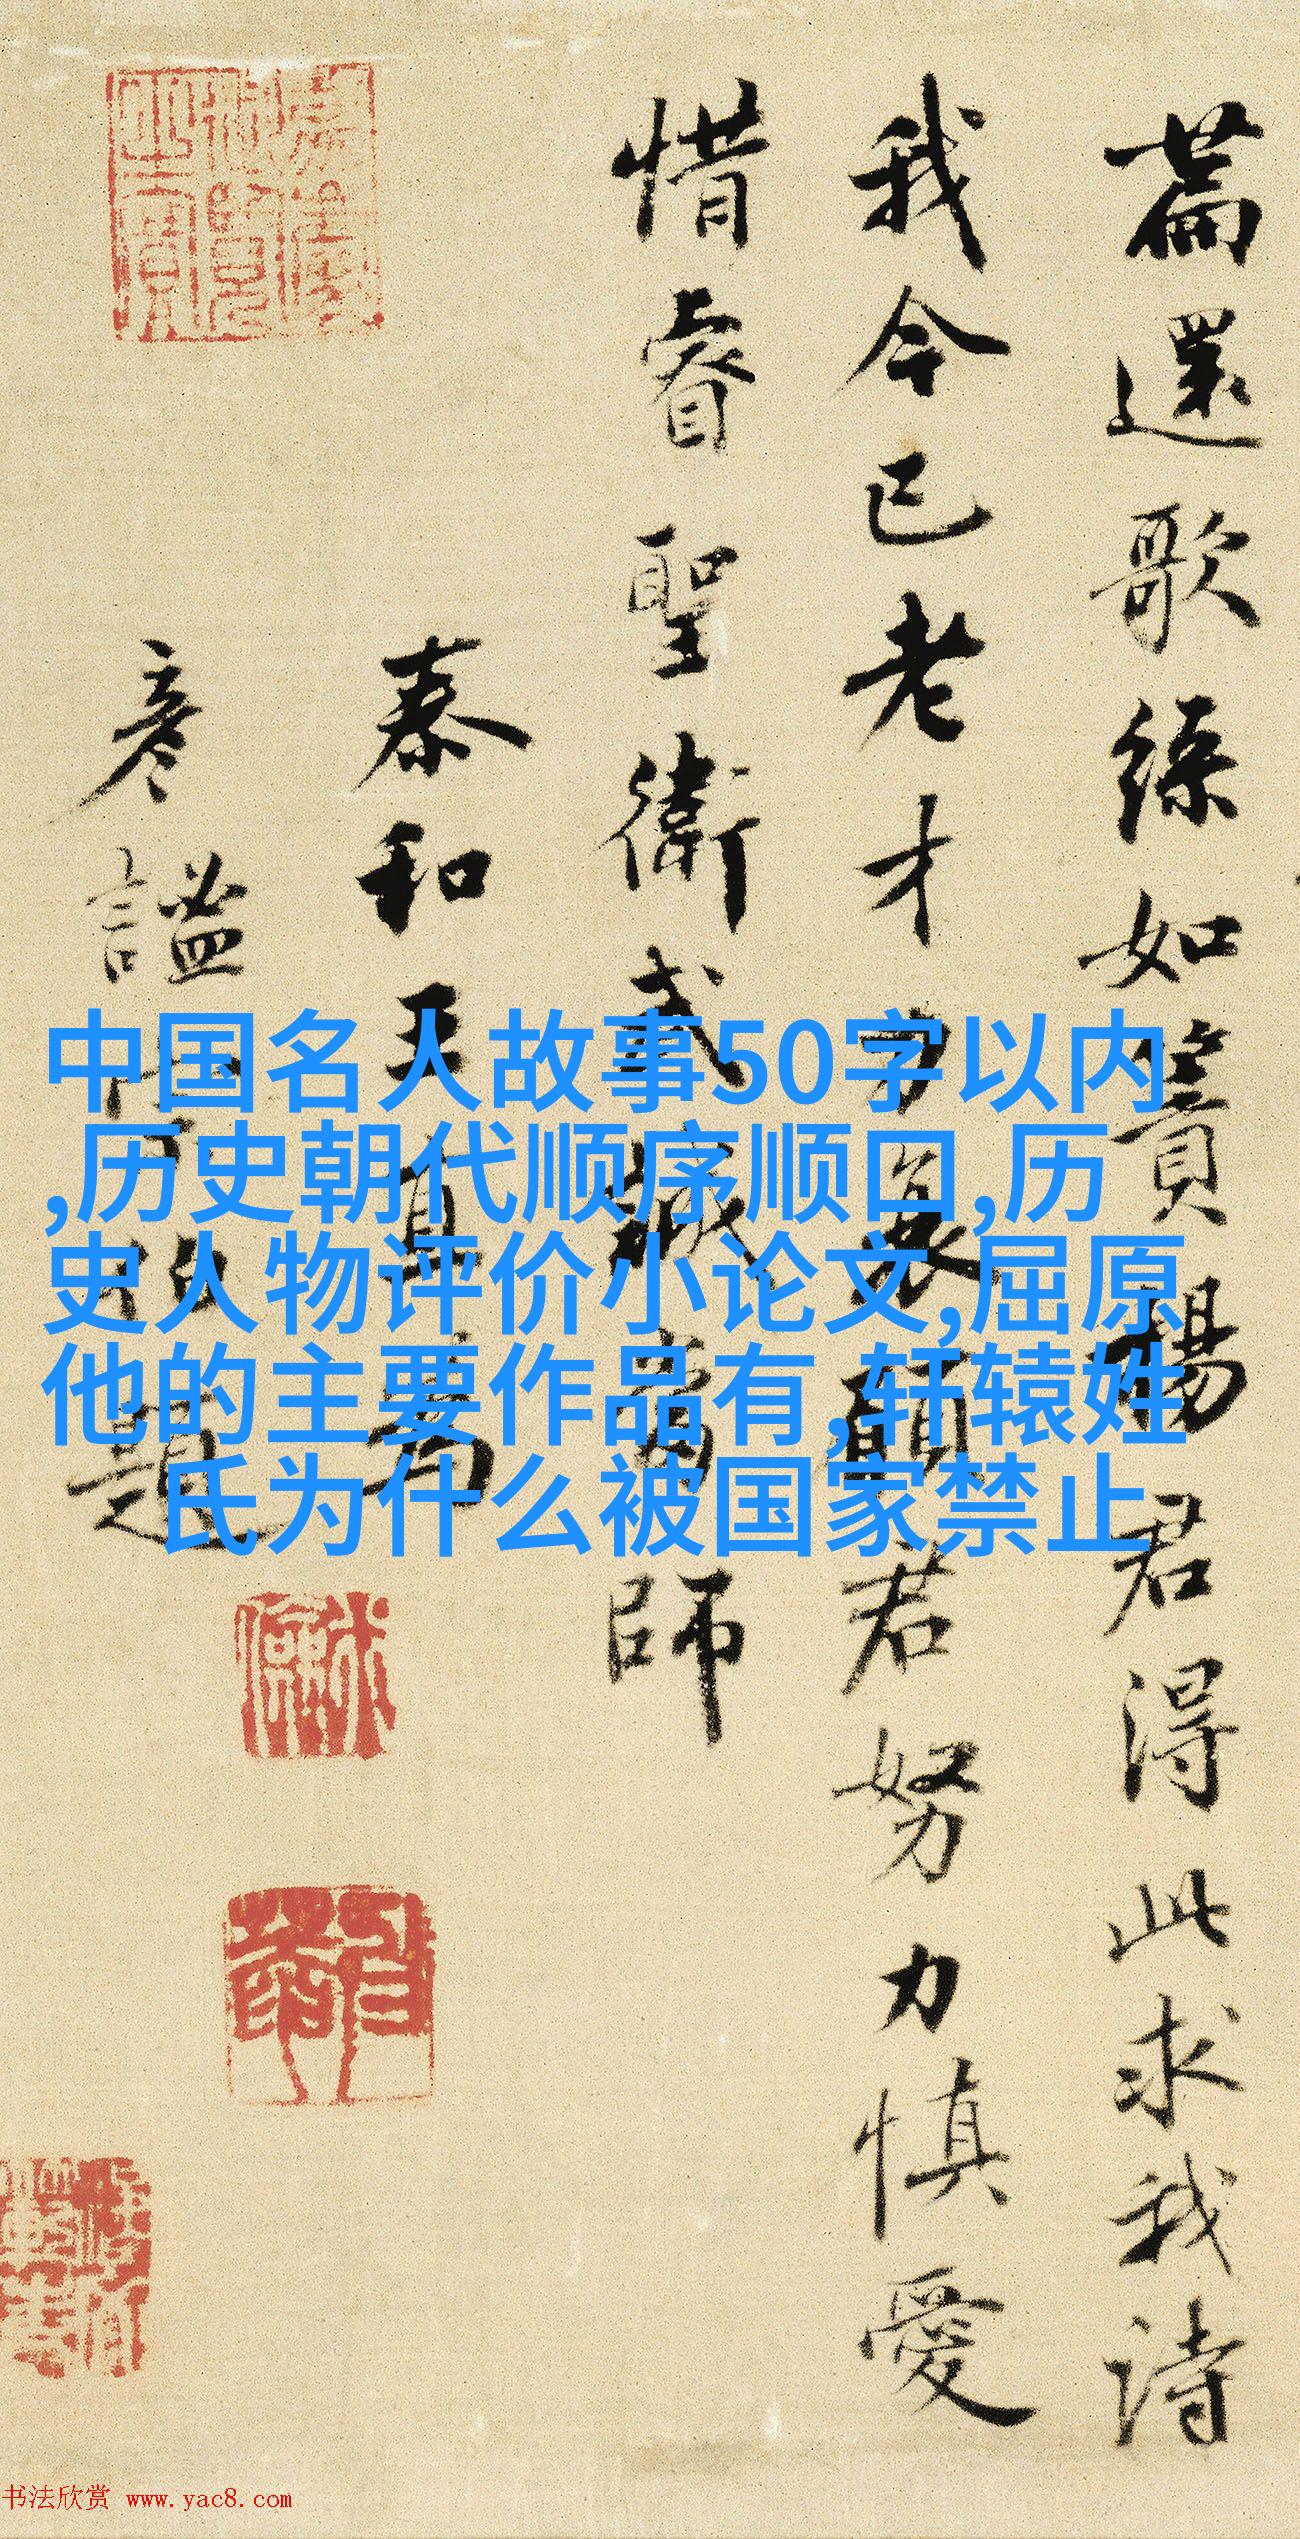 萹還歌綠如簀楊君得此求我詩
我今已老才力衰顧君努力慎愛
惜睿聖衛武誠爾師
泰和王直為
彥謐
題
中国名人故事50字以内
,历史朝代顺序顺口,历
史人物评价小论文,屈原
他的主要作品有,轩辕姓
氏为什么被国家禁止
书法欣赏 www.yac8.com